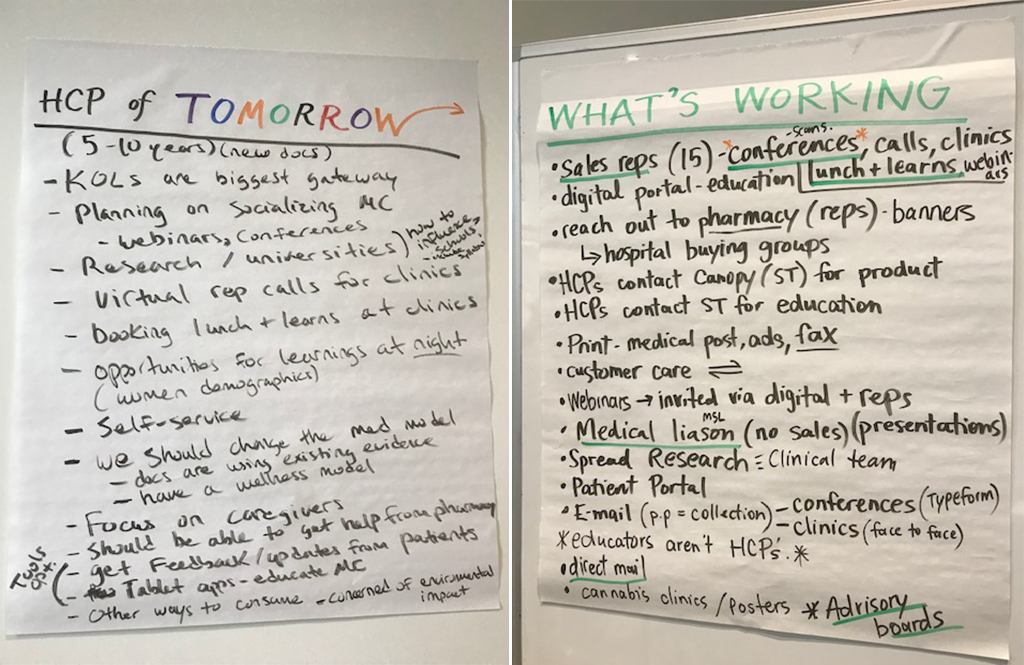 HCP of TOMORROW
(5-10 years) (new docs)
- KOLs are biggest gateway
- Planning on Socializing MC
- webinars, conferences
- Research / universities) how to influence schools,
- Virtual rep calls for clinics
- booking lunch + learns at clinics
- opportunities for learnings at night
(women demographics)
- Self-service
- we should change the med model
- docs are using existing evidence
- have a wellness model
- Focus on caregivers
- Should be able to get help from pharmacy
Tools
- get Feedback/updates from patients
- Tablet apps - educate MC
- Other ways to consume - concerned of enviromental
impact
WHAT'S WORKING
• Sales reps (15) - conferences*, calls, clinics
- scans.
• digital portal - education lunch + learns, webinars
• reach out to pharmacy (reps) - banners
↳ hospital buying groups
• HCPs contact Canopy (ST) for product
• HCPs contact ST for education
• Print - medical post, ads, fax
• customer care ⇌
• Webinars → invited via digital + reps
• Medical liason (no sales) (presentations)
MSL
• Spread Research = Clinical team
• Patient Portal
• E-mail (p.p = collection) - conferences (Typeform)
- clinics (face to face)
* educators aren't HCP's. *
• direct mail
• cannabis clinics / posters * Advisory
boards